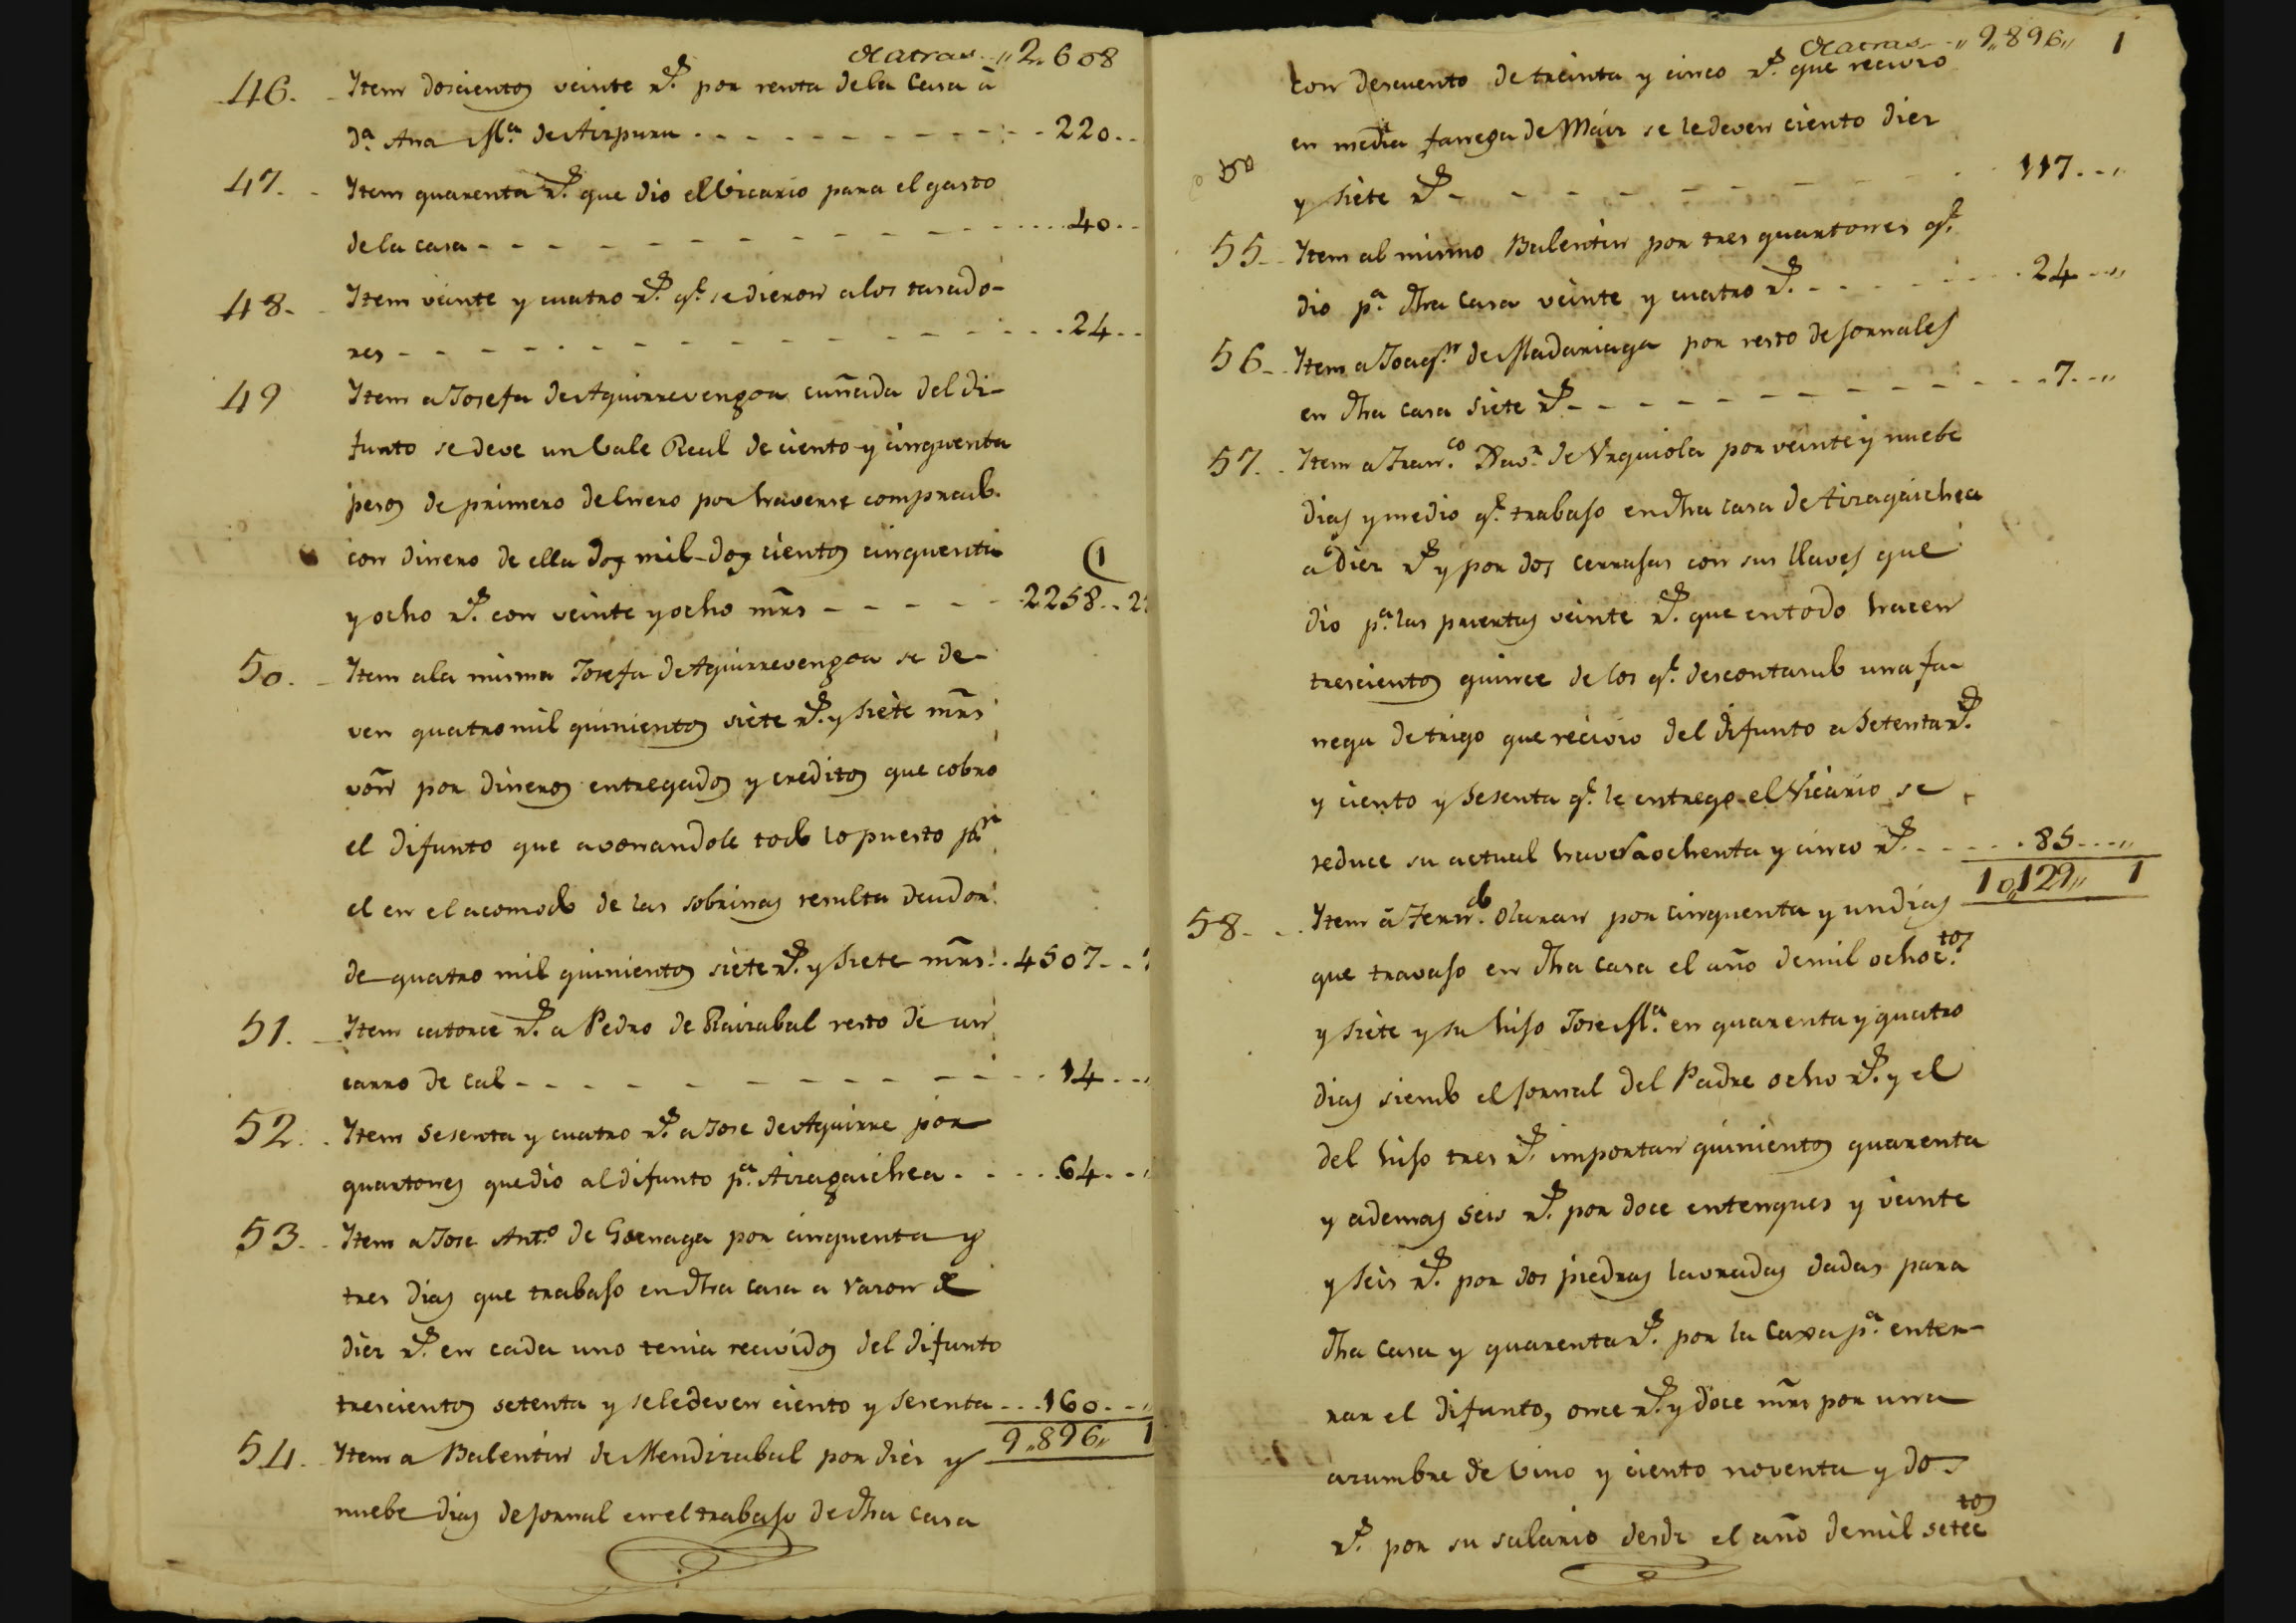 De atras " 2" 608
46. Item doscientos veinte rs. por renta de la Casa à
da. Ana Ma. de Aizpuru 220
47. Item quarenta rs. que dio el Vicario para el gasto
de la casa 40
48. Item veinte y cuatro rs. qe. se dieron a los tasado-
res 24
49 Item a Josefa de Aguirrevengoa cuñada del di-
funto se deve un Vale Real de ciento y cinquenta
pesos de primero de Enero por haverse comprado
con dinero de ella dos mil dos cientos cinquenta
y ocho rs. con veinte y ocho mrs 2258.. 2
(1
50. Item a la misma Josefa de Aguirrevengoa se de-
ven quatro mil quinientos siete rs. y siete mrs
von por dineros entregados y creditos que cobro
el difunto que avonandole todo lo puesto pr.
el en el acomodo de las sobrinas resulta deudor
de quatro mil quinientos siete rs. y siete mrs. 4507
51. Item catorce rs. a Pedro de Raizabal resto de un
carro de cal 14
52. Item sesenta y cuatro rs. a Jose de Aguirre por
quartones que dio al difunto pa. Aizagaichea 64
53. Item a Jose Anto. de Goenaga por cinquenta y
tres dias que trabaso en dha casa a razon de
diez rs. en cada uno tenia recividos del difunto
trescientos setenta y se le deven ciento y sesenta 160
9"896" 1
54. Item a Balentin de Mendizabal por diez y
nuebe dias de jornal en el trabaso de dha casa
De atras " 9"896" 1
con descuento de treinta y cinco rs. que recivio
en media fanega de Maiz se le deven ciento diez
y siete rs 117
55. Item al mismo Balentin por tres quartones qe.
dio pa. dha Casa veinte y cuatro rs. 24
56. Item a Joaqn. de Madariaga por resto de jornales
en dha casa siete rs 7
57. Item a Franco. Xavr. de Urquiola por veinte y nuebe
dias y medio qe. trabaso en dha casa de Aizagaichea
à diez rs y por dos cerrasas con sus llaves que
dio pa. las puertas veinte rs. que en todo hacen
trescientos quince de los qe. descontando una fa-
nega de trigo que recivio del difunto a setenta rs.
y ciento y sesenta qe. le entrego el Vicario se
reduce su actual haver a ochenta y cinco rs. 85
10"129" 1
58. Item à Ferndo. Olaran por cinquenta y un dias
que travaso en dha casa el año de mil ochoctos.
y siete y su hiso Jose Ma. en quarenta y quatro
dias siendo el jornal del Padre ocho rs. y el
del hiso tres rs. importan quinientos quarenta
y ademas seis rs. por doce entengues y veinte
y seis rs. por dos piedras lavradas dadas para
dha Casa y quarenta rs. por la Caxa pa. enter-
rar el difunto, once rs. y doce mrs por una
azumbre de vino y ciento noventa y dos
rs. por su salario desde el año de mil setectos